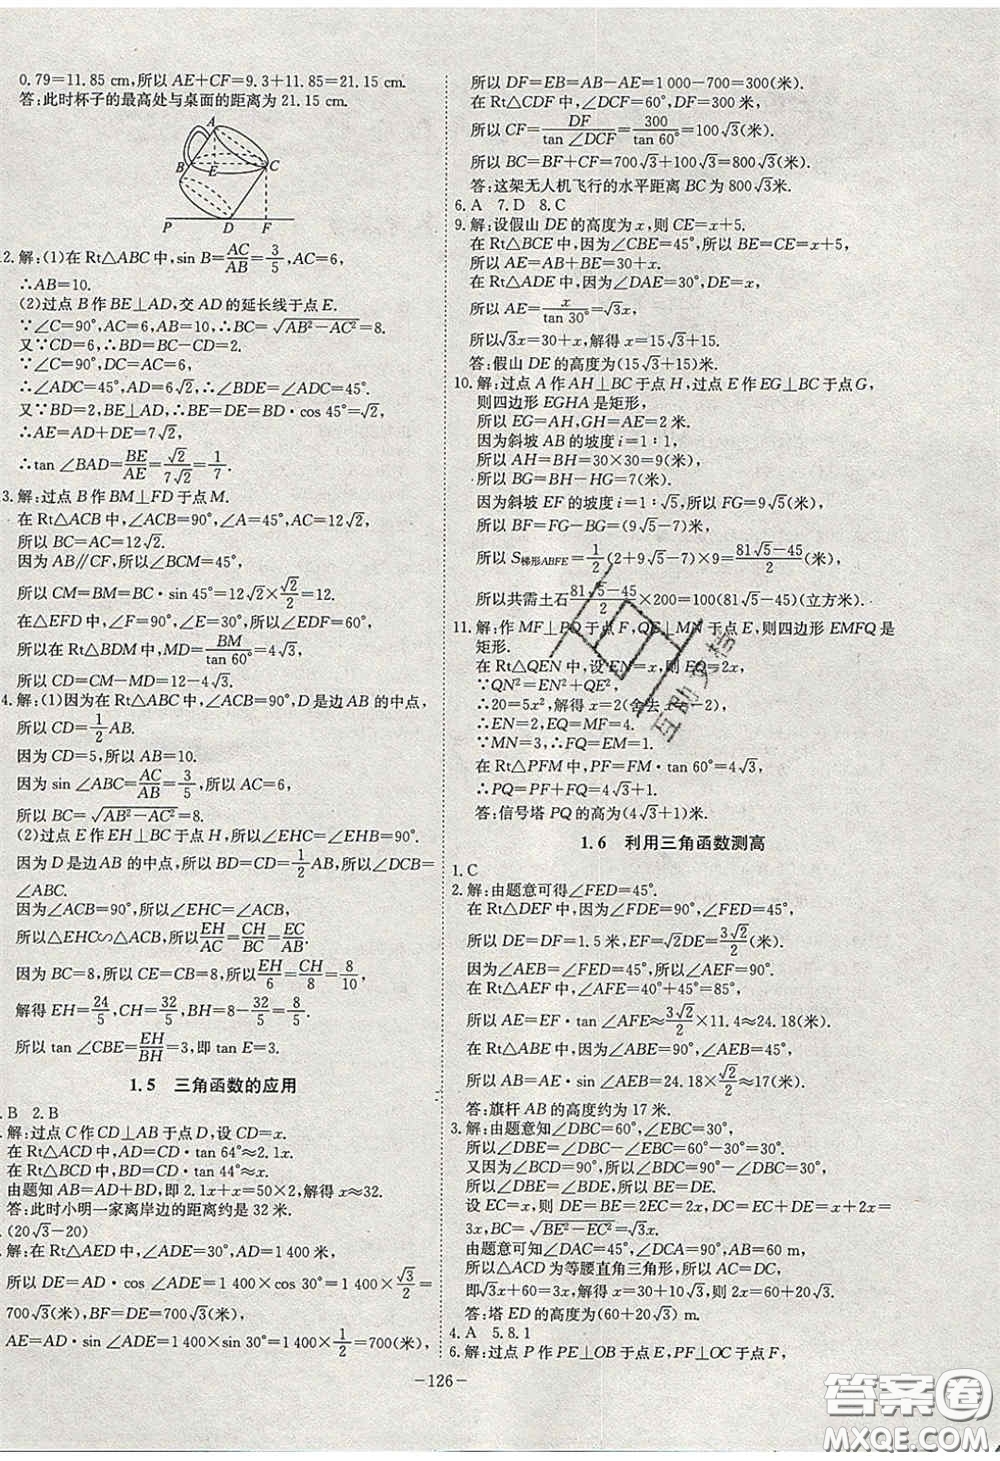 0.79=11.85 cm,所以 AE+CF=9.3+11.85=21.15 cm.
答:此时杯子的最高处与桌面的距离为 21.15 cm.
A
B
E
C
P
D
F
2.解:(1)在 Rt△ABC 中,sin B=AC/AB=3/5,AC=6,
∴AB=10.
(2)过点 B 作 BE⊥AD,交 AD 的延长线于点 E.
∵∠C=90°,AC=6,AB=10,∴BC=√(AB²-AC²)=8.
又∵CD=6,∴BD=BC-CD=2.
∵∠C=90°,DC=AC=6,
∴∠ADC=45°,AD=6√2,∴∠BDE=∠ADC=45°.
又∵BD=2,BE⊥AD,∴BE=DE=BD·cos 45°=√2,
∴AE=AD+DE=7√2,
∴tan ∠BAD=BE/AE=√2/7√2=1/7.
3.解:过点 B 作 BM⊥FD 于点 M.
在 Rt△ACB 中,∠ACB=90°,∠A=45°,AC=12√2,
所以 BC=AC=12√2.
因为 AB∥CF,所以∠BCM=45°,
所以 CM=BM=BC·sin 45°=12√2×√2/2=12.
在△EFD 中,∠F=90°,∠E=30°,所以∠EDF=60°,
所以在 Rt△BDM 中,MD=BM/tan 60°=4√3,
所以 CD=CM-MD=12-4√3.
4.解:(1)因为在 Rt△ABC 中,∠ACB=90°,D是边 AB 的中点,
所以 CD=1/2 AB.
因为 CD=5,所以 AB=10.
因为 sin ∠ABC=AC/AB=3/5,所以 AC=6,
所以 BC=√(AB²-AC²)=8.
(2)过点 E 作 EH⊥BC 于点 H,所以∠EHC=∠EHB=90°.
因为 D 是边 AB 的中点,所以 BD=CD=1/2 AB,所以∠DCB=
∠ABC.
因为∠ACB=90°,所以∠EHC=∠ACB,
所以△EHC∽△ACB,所以EH/AC=CH/BC=EC/AB.
因为 BC=8,所以 CE=CB=8,所以EH/6=CH/8=8/10,
解得 EH=24/5,CH=32/5,BH=8-32/5=8/5,
所以 tan ∠CBE=EH/BH=3,即 tan E=3.
1.5 三角函数的应用
.B 2.B
.解:过点 C 作 CD⊥AB 于点 D,设 CD=x.
在 Rt△ACD 中,AD=CD·tan 64°≈2.1x.
在 Rt△BCD 中,BD=CD·tan 44°≈x.
由题知 AB=AD+BD,即 2.1x+x=50×2,解得 x≈32.
答:此时小明一家离岸边的距离约是 32 米.
.(20√3-20)
.解:在 Rt△AED 中,∠ADE=30°,AD=1 400 米,
所以 DE=AD·cos ∠ADE=1 400×cos 30°=1 400×√3/2=
700√3(米),BF=DE=700√3(米),
AE=AD·sin ∠ADE=1 400×sin 30°=1 400×1/2=700(米),
所以 DF=EB=AB-AE=1 000-700=300(米).
在 Rt△CDF 中,∠DCF=60°,DF=300米,
所以 CF=DF/tan ∠DCF=300/tan 60°=100√3(米).
所以 BC=BF+CF=700√3+100√3=800√3(米).
答:这架无人机飞行的水平距离 BC 为 800√3米.
6.A 7.D 8.C
9.解:设假山 DE 的高度为 x,则 CE=x+5.
在 Rt△BCE 中,因为∠CBE=45°,所以 BE=CE=x+5,
所以 AE=AB+BE=30+x.
在 Rt△ADE 中,因为∠DAE=30°,DE=x,
所以 AE=x/tan 30°=√3x,
所以√3x=30+x,解得 x=15√3+15.
答:假山 DE 的高度为(15√3+15)米.
10.解:过点 A 作 AH⊥BC 于点 H,过点 E 作 EG⊥BC 于点 G,
则四边形 EGHA 是矩形,
所以 EG=AH,GH=AE=2 米.
因为斜坡 AB 的坡度 i=1∶1,
所以 AH=BH=30×30=9(米).
所以 BG=BH-HG=7(米).
因为斜坡 EF 的坡度 i=1∶√5,所以 FG=9√5(米),
所以 BF=FG-BG=(9√5-7)米,
所以 S梯形ABFE=1/2(2+9√5-7)×9=(81√5-45)/2(米),
所以共需土石(81√5-45)/2×200=100(81√5-45)(立方米).
11.解:作 MF⊥PQ 于点 F,QE⊥MN 于点 E,则四边形 EMFQ 是
矩形.
在 Rt△QEN 中,设 EN=x,则 EQ=2x.
∵QN²=EN²+QE²,
∴20=5x²,解得 x=2(舍去 x=-2),
∴EN=2,EQ=MF=4.
∵MN=3,∴FQ=EM=1.
在 Rt△PFM 中,PF=FM·tan 60°=4√3,
∴PQ=PF+FQ=4√3+1.
答:信号塔 PQ 的高为(4√3+1)米.
1.6 利用三角函数测高
1.C
2.解:由题意可得∠FED=45°.
在 Rt△DEF 中,因为∠FDE=90°,∠FED=45°,
所以 DE=DF=1.5 米,EF=√2DE=3√2/2(米).
因为∠AEB=∠FED=45°,所以∠AEF=90°.
在 Rt△AEF 中,因为∠AFE=40°+45°=85°,
所以 AE=EF·tan ∠AFE≈3√2/2×11.4≈24.18(米).
在 Rt△ABE 中,因为∠ABE=90°,∠AEB=45°,
所以 AB=AE·sin ∠AEB≈24.18×√2/2≈17(米).
答:旗杆 AB 的高度约为 17 米.
3.解:由题意知∠DBC=60°,∠EBC=30°,
所以∠DBE=∠DBC-∠EBC=60°-30°=30°.
又因为∠BCD=90°,所以∠BDC=90°-∠DBC=30°,
所以∠DBE=∠BDE,所以 BE=DE.
设 EC=x,则 DE=BE=2EC=2x,DC=EC+DE=x+2x=
3x,BC=√(BE²-EC²)=√3x.
由题意可知∠DAC=45°,∠DCA=90°,AB=60 m,
所以△ACD 为等腰直角三角形,所以 AC=DC,
即√3x+60=3x,解得 x=30+10√3,即 DE=60+20√3.
答:塔 ED 的高度为(60+20√3) m.
4.A 5.8.1
6.解:过点 P 作 PE⊥OB 于点 E,PF⊥OC 于点 F,
-126-
互助文档
答案圈
MXQE.COM